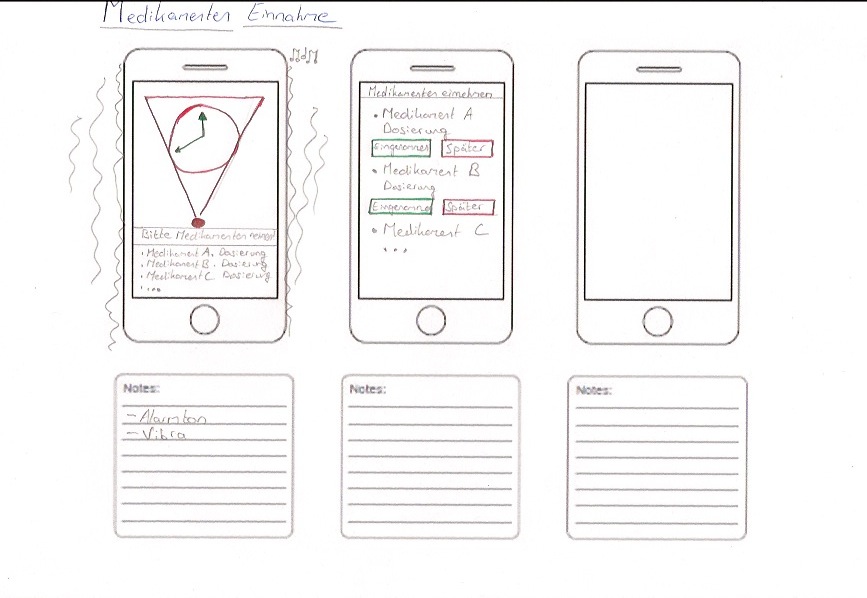 Medikamenten Einnahme
Bitte Medikamenten nehmen!
• Medikament A, Dosierung
• Medikament B, Dosierung
• Medikament C, Dosierung
• ...
Medikamenten einnehmen
• Medikament A
Dosierung
Eingenommen Später
• Medikament B
Dosierung
Eingenommen Später
• Medikament C
...
Notes:
– Alarmton
– Vibra
Notes:
Notes: